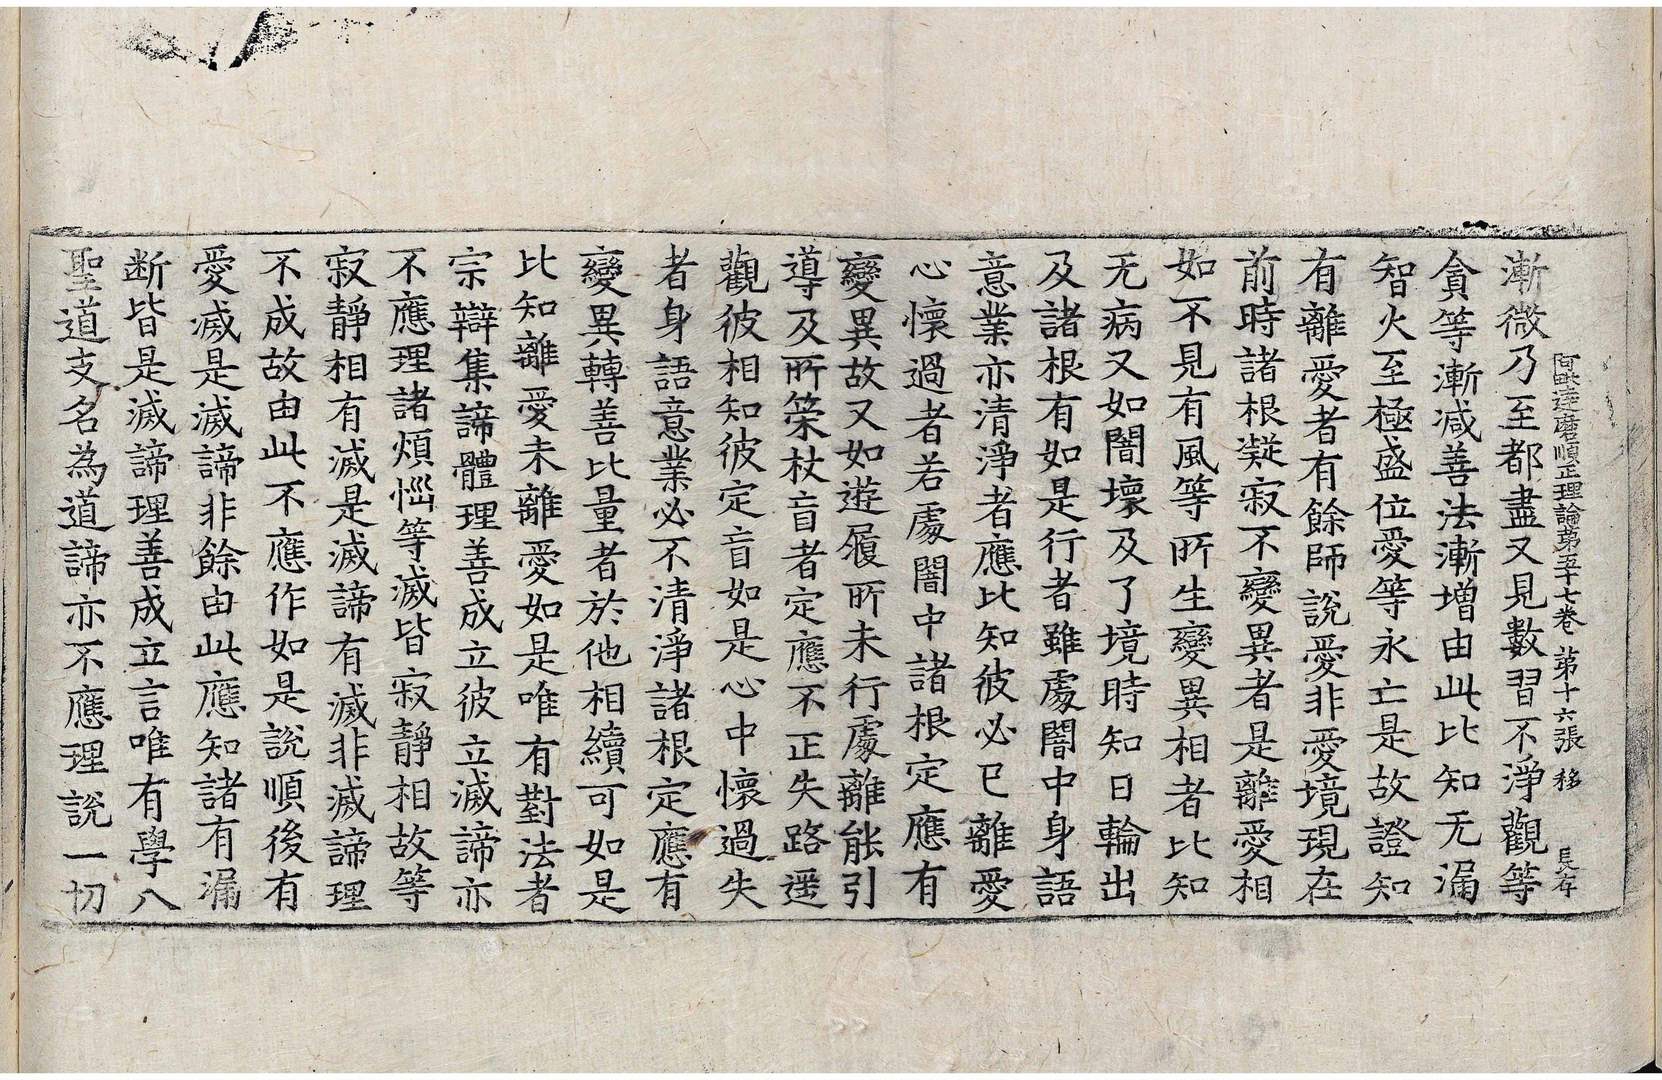 阿毗達磨順正理論第五十七卷 第十六張 移 長存
漸微乃至都盡又見數習不淨觀等
貪等漸減善法漸增由此比知无漏
智火至極盛位愛等永亡是故證知
有離愛者有餘師說愛非愛境現在
前時諸根凝寂不變異者是離愛相
如不見有風等所生變異相者比知
无病又如闇壞及了境時知日輪出
及諸根有如是行者雖處闇中身語
意業亦清淨者應比知彼必已離愛
心懷過者若處闇中諸根定應有
變異故又如遊履所未行處離能引
導及所策杖盲者定應不正失路遥
觀彼相知彼定盲如是心中懷過失
者身語意業必不清淨諸根定應有
變異轉善比量者於他相續可如是
比知離愛未離愛如是唯有對法者
宗辯集諦體理善成立彼立滅諦亦
不應理諸煩惱等滅皆寂靜相故等
寂靜相有滅是滅諦有滅非滅諦理
不成故由此不應作如是說順後有
愛滅是滅諦非餘由此應知諸有漏
断皆是滅諦理善成立言唯有學八
聖道支名為道諦亦不應理說一切